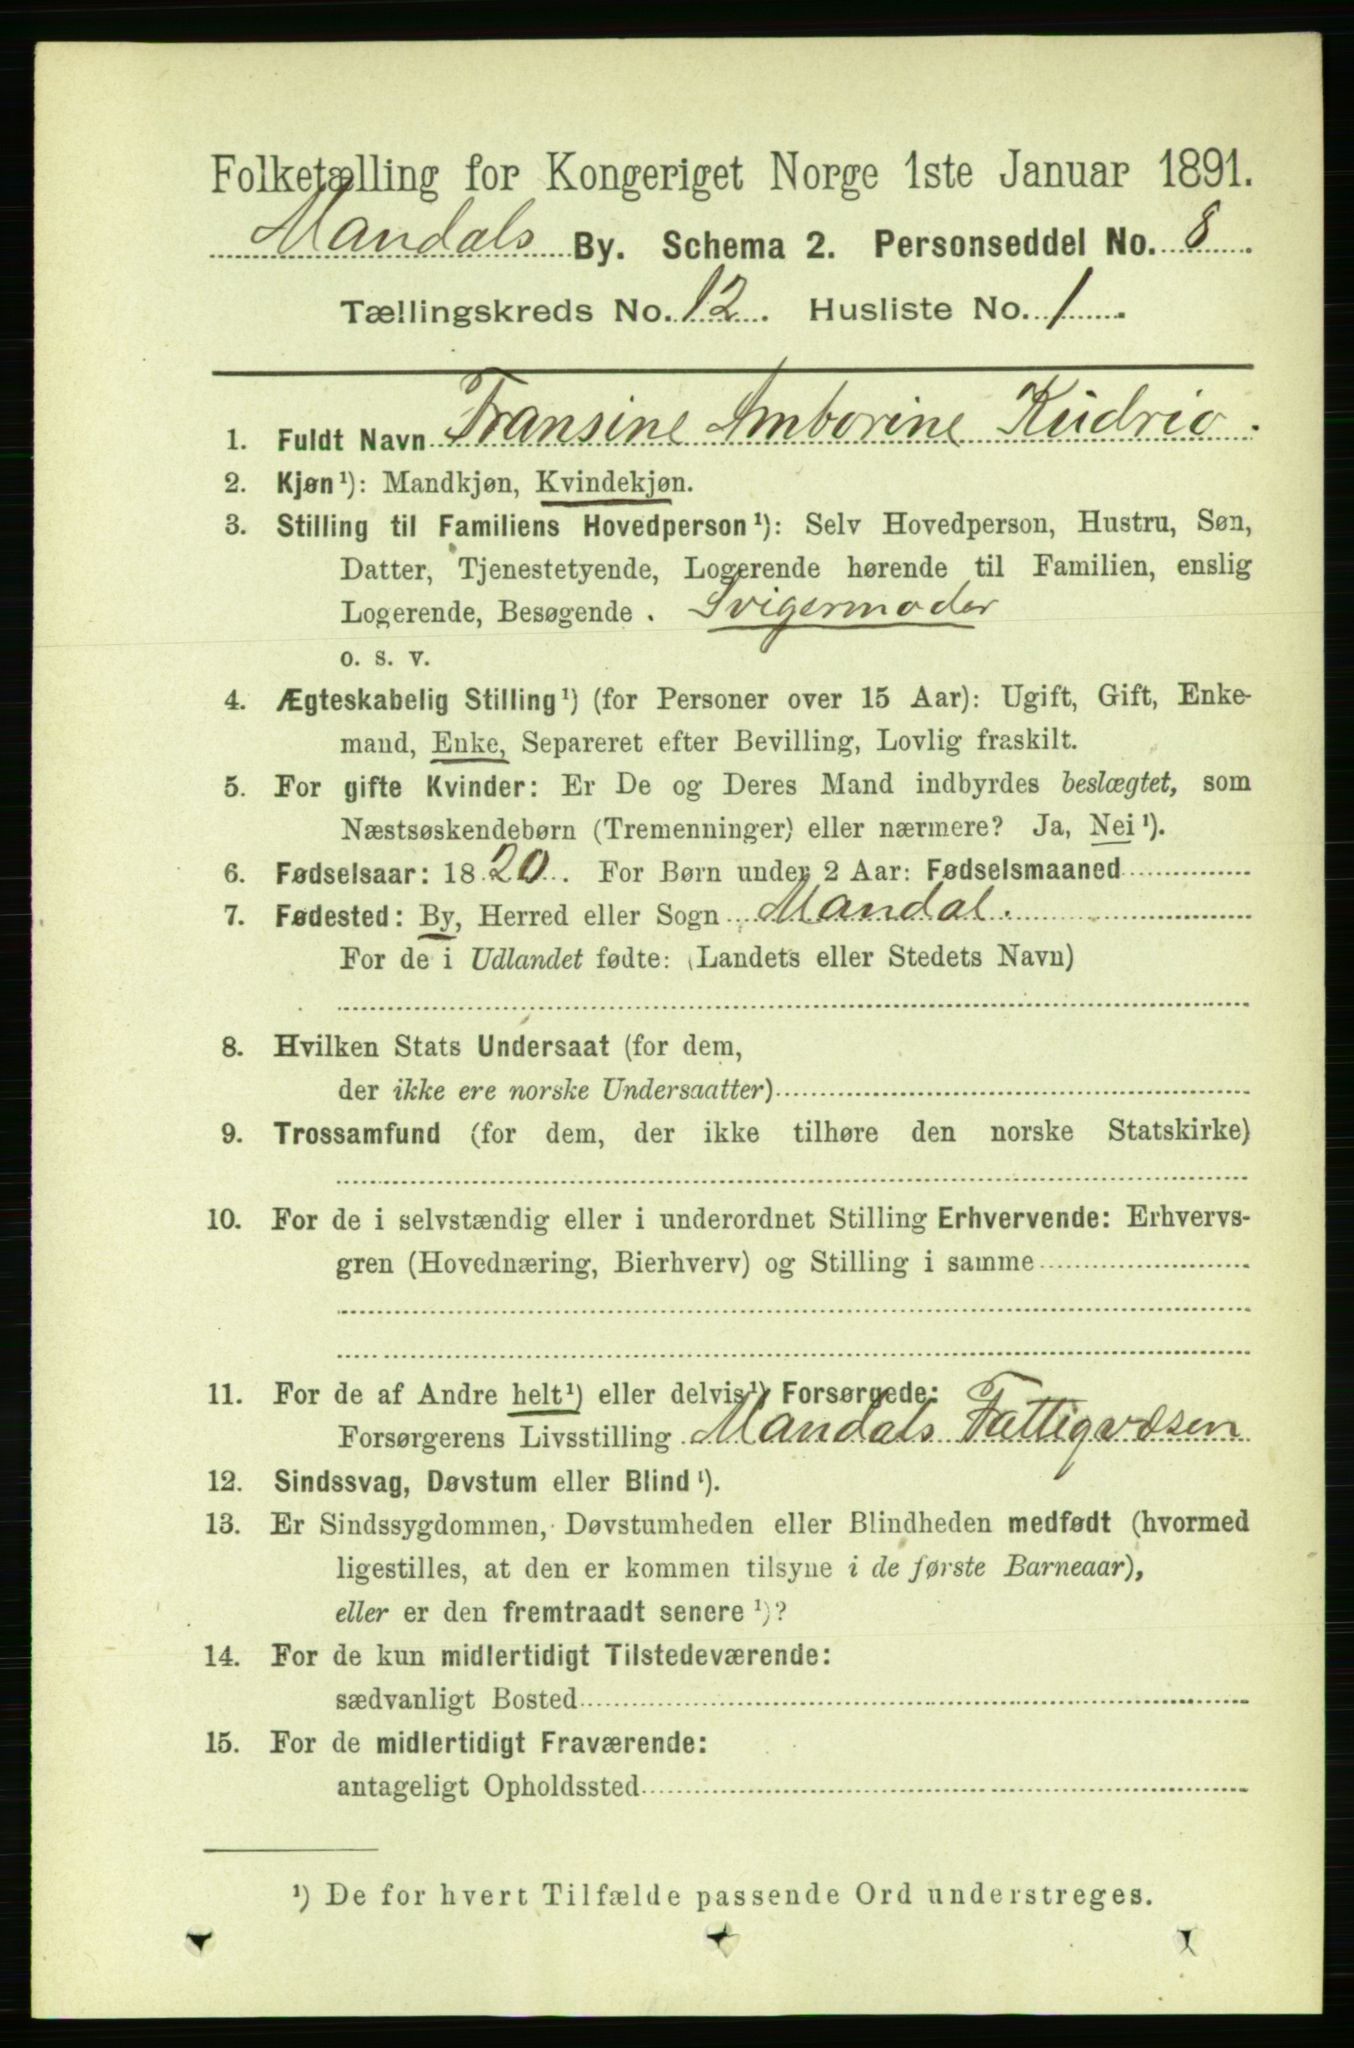 Folketælling for Kongeriget Norge 1ste Januar 1891.
Mandals By. Schema 2. Personseddel No. 8.
Tællingskreds No. 12. Husliste No. 1.
1. Fuldt Navn Fransine Amborine Kudrio.
2. Kjøn¹): Mandkjøn, Kvindekjøn.
3. Stilling til Familiens Hovedperson¹): Selv Hovedperson, Hustru, Søn,
Datter, Tjenestetyende, Logerende hørende til Familien, enslig
Logerende, Besøgende. Svigermoder
o. s. v.
4. Ægteskabelig Stilling¹) (for Personer over 15 Aar): Ugift, Gift, Enke-
mand, Enke, Separeret efter Bevilling, Lovlig fraskilt.
5. For gifte Kvinder: Er De og Deres Mand indbyrdes beslægtet, som
Næstsøskendebørn (Tremenninger) eller nærmere? Ja, Nei¹).
6. Fødselsaar: 1820. For Børn under 2 Aar: Fødselsmaaned
7. Fødested: By, Herred eller Sogn Mandal.
For de i Udlandet fødte: (Landets eller Stedets Navn)
8. Hvilken Stats Undersaat (for dem,
der ikke ere norske Undersaatter)
9. Trossamfund (for dem, der ikke tilhøre den norske Statskirke)
10. For de i selvstændig eller i underordnet Stilling Erhvervende: Erhvervs-
gren (Hovednæring, Bierhverv) og Stilling i samme
11. For de af Andre helt¹) eller delvis¹) Forsørgede:
Forsørgerens Livsstilling Mandals Fattigvæsen
12. Sindssvag, Døvstum eller Blind¹).
13. Er Sindssygdommen, Døvstumheden eller Blindheden medfødt (hvormed
ligestilles, at den er kommen tilsyne i de første Barneaar),
eller er den fremtraadt senere¹)?
14. For de kun midlertidigt Tilstedeværende:
sædvanligt Bosted
15. For de midlertidigt Fraværende:
antageligt Opholdssted
¹) De for hvert Tilfælde passende Ord understreges.